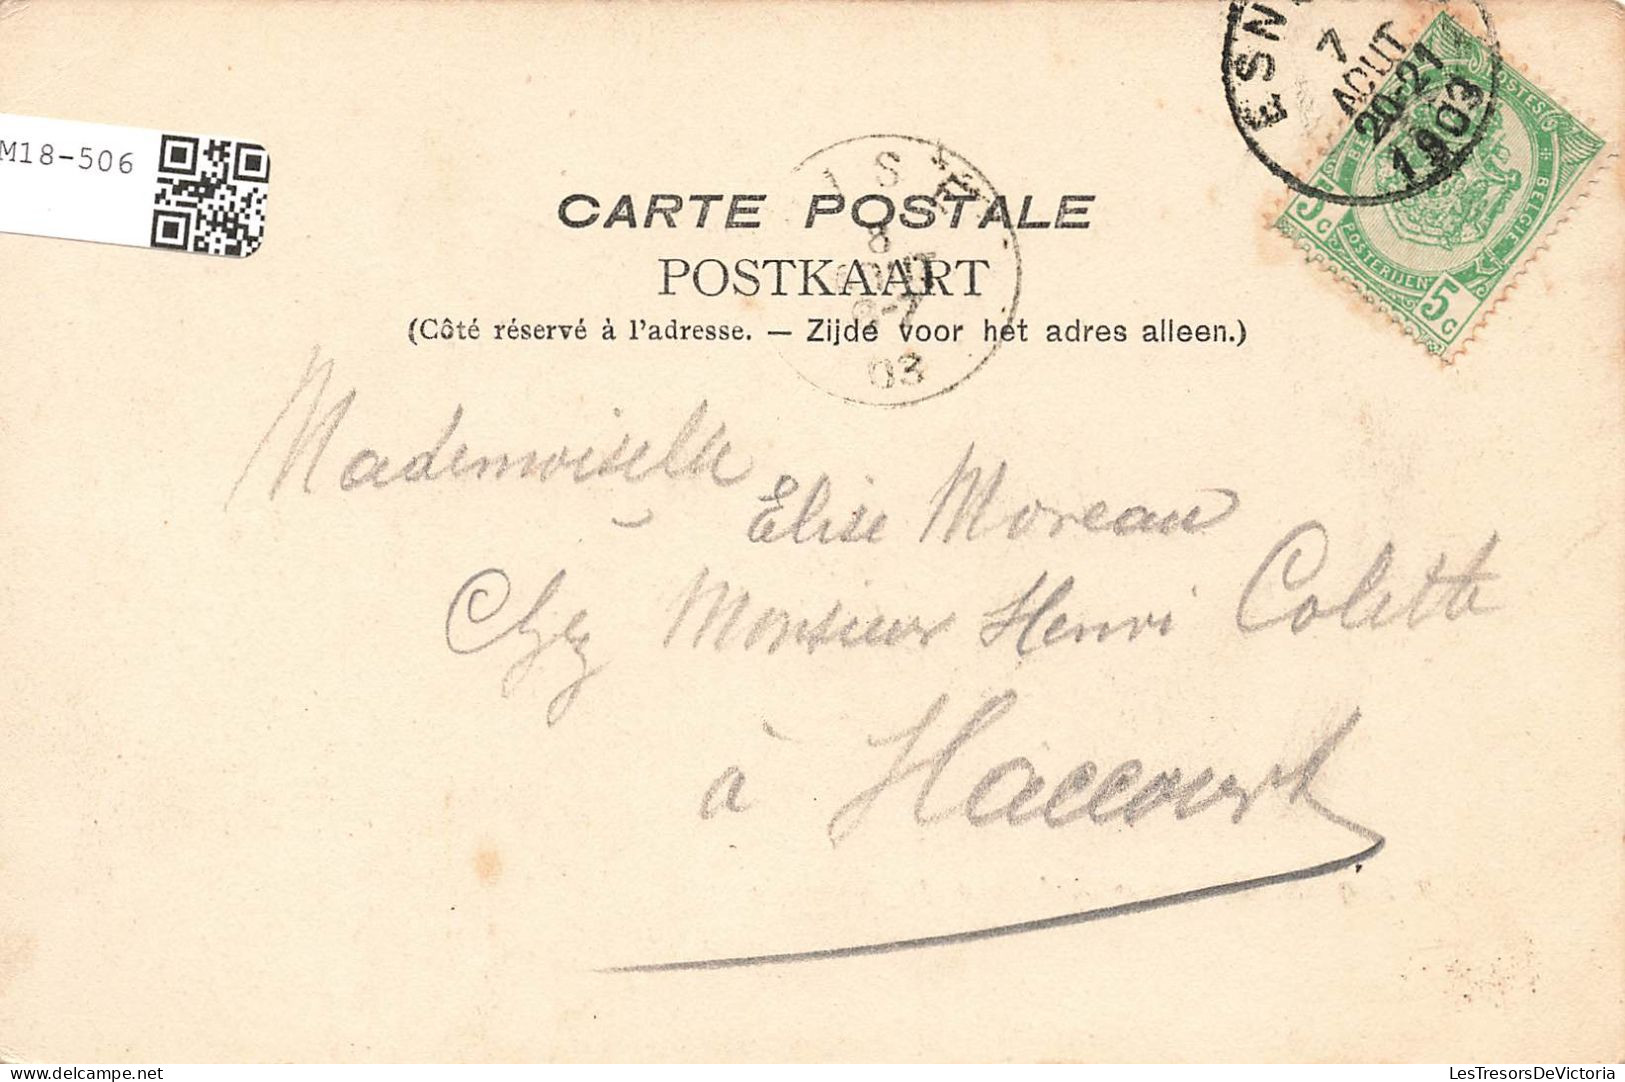 M18-506
ESN
7
AOUT
20-21
1903
POSTES
BELGIE
POSTERIJEN
5c
5c
ISE
8
AOUT
6-7
03
CARTE POSTALE
POSTKAART
(Côté réservé à l'adresse. — Zijde voor het adres alleen.)
Mademoiselle
Elise Moreau
Chez Monsieur Henri Colette
à Haccourt
LesTresorsDeVictoria